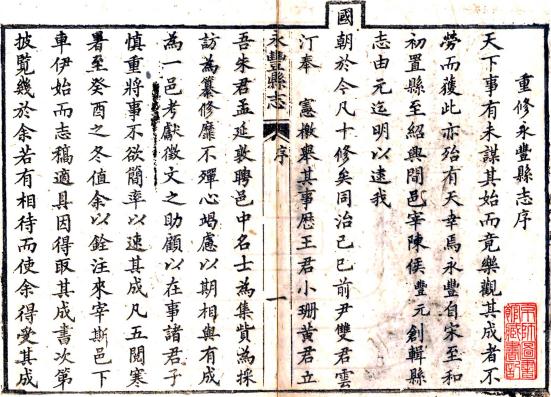 重修永豐縣志序
天下事有未謀其始而竟樂觀其成者不
勞而獲此亦殆有天幸焉永豐自宋至和
初置縣至紹興間邑宰陳侯豐元創輯縣
志由元迄明以逮我
國
朝於今凡十修矣同治己巳前尹雙君雲
汀奉憲檄舉其事歷王君小珊黃君立
永豐縣志
序
一
吾朱君孟延敦聘邑中名士為集貲為採
訪為纂修靡不殫心竭慮以期相與有成
為一邑考獻徵文之助顧以在事諸君子
慎重將事不欲簡率以速其成凡五閱寒
暑至癸酉之冬值余以銓注來宰斯邑下
車伊始而志稿適具因得取其成書次第
披覽幾於余若有相待而使余得受其成